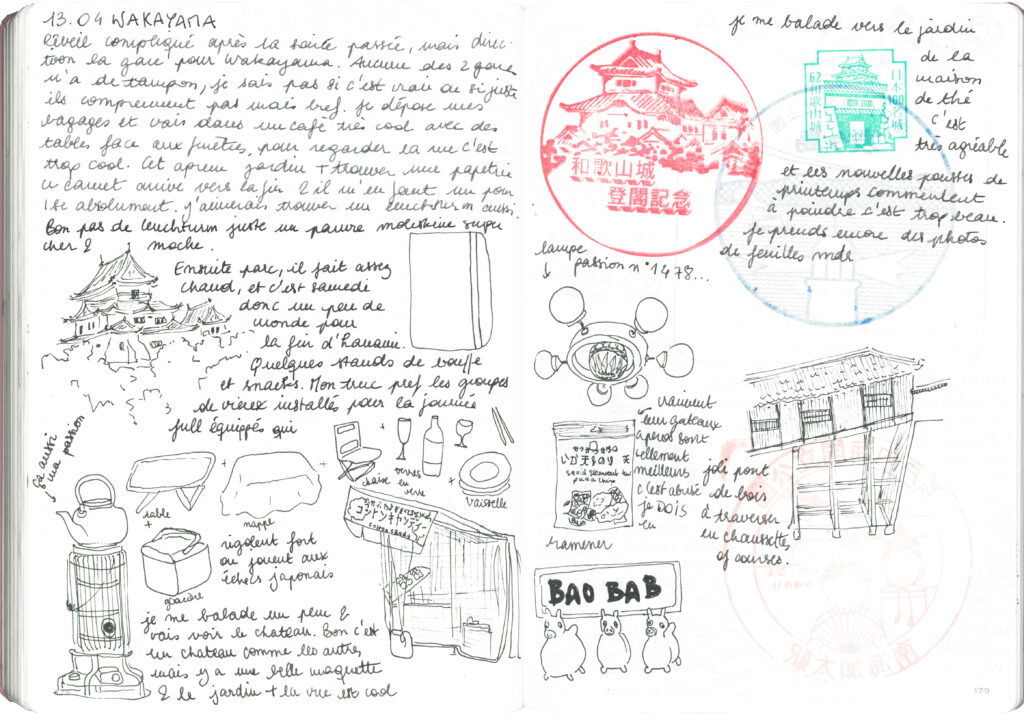 13.04 WAKAYAMA
Réveil compliqué après la soirée passée, mais direc-
tion la gare pour Wakayama. Aucune des 2 gares
n'a de tampon, je sais pas si c'est vrai ou si juste
ils comprennent pas mais bref. Je dépose mes
bagages et vais dans un café très cool avec des
tables face aux fenêtres, pour regarder la rue c'est
trop cool. Cet aprem jardin + trouver une papetrie
ce carnet arrive vers la fin & il m'en faut un pour
absolument. J'aimerais trouver un leuchturm aussi.
Bon pas de leuchturm juste un pauvre moleskine super
cher & moche.
Ensuite parc, il fait assez
chaud, et c'est samedi
donc un peu de
monde pour
la fin d'hanami.
Quelques stands de bouffe
et snacks. Mon truc pref les groupes
de vieux installés pour la journée
full équippés qui
ça aussi
ma passion
table
+
nappe
+
chaise
+
verres
en verre
+
vaisselle
+
glacière
rigolent fort
ou jouent aux
échecs japonais
コットンキャンディー
je me balade un peu &
vais voir le chateau. Bon c'est
un chateau comme les autres
mais y a une belle maquette
& le jardin + la vue est cool
je me balade vers le jardin
de la
maison
de thé
c'est
très agréable
和歌山城
登閣記念
日本100名城
62 和歌山城
et les nouvelles pousses de
printemps commencent
à poindre c'est trop beau.
Je prends encore des photos
de feuilles mdr
lampe
passion n°1478...
vraiment
leur gateaux
apéros sont
tellement
meilleurs
c'est abusé
je DOIS
en
ramener
joli pont
de bois
à traverser
en chaussettes
of courses.
BAO BAB
179